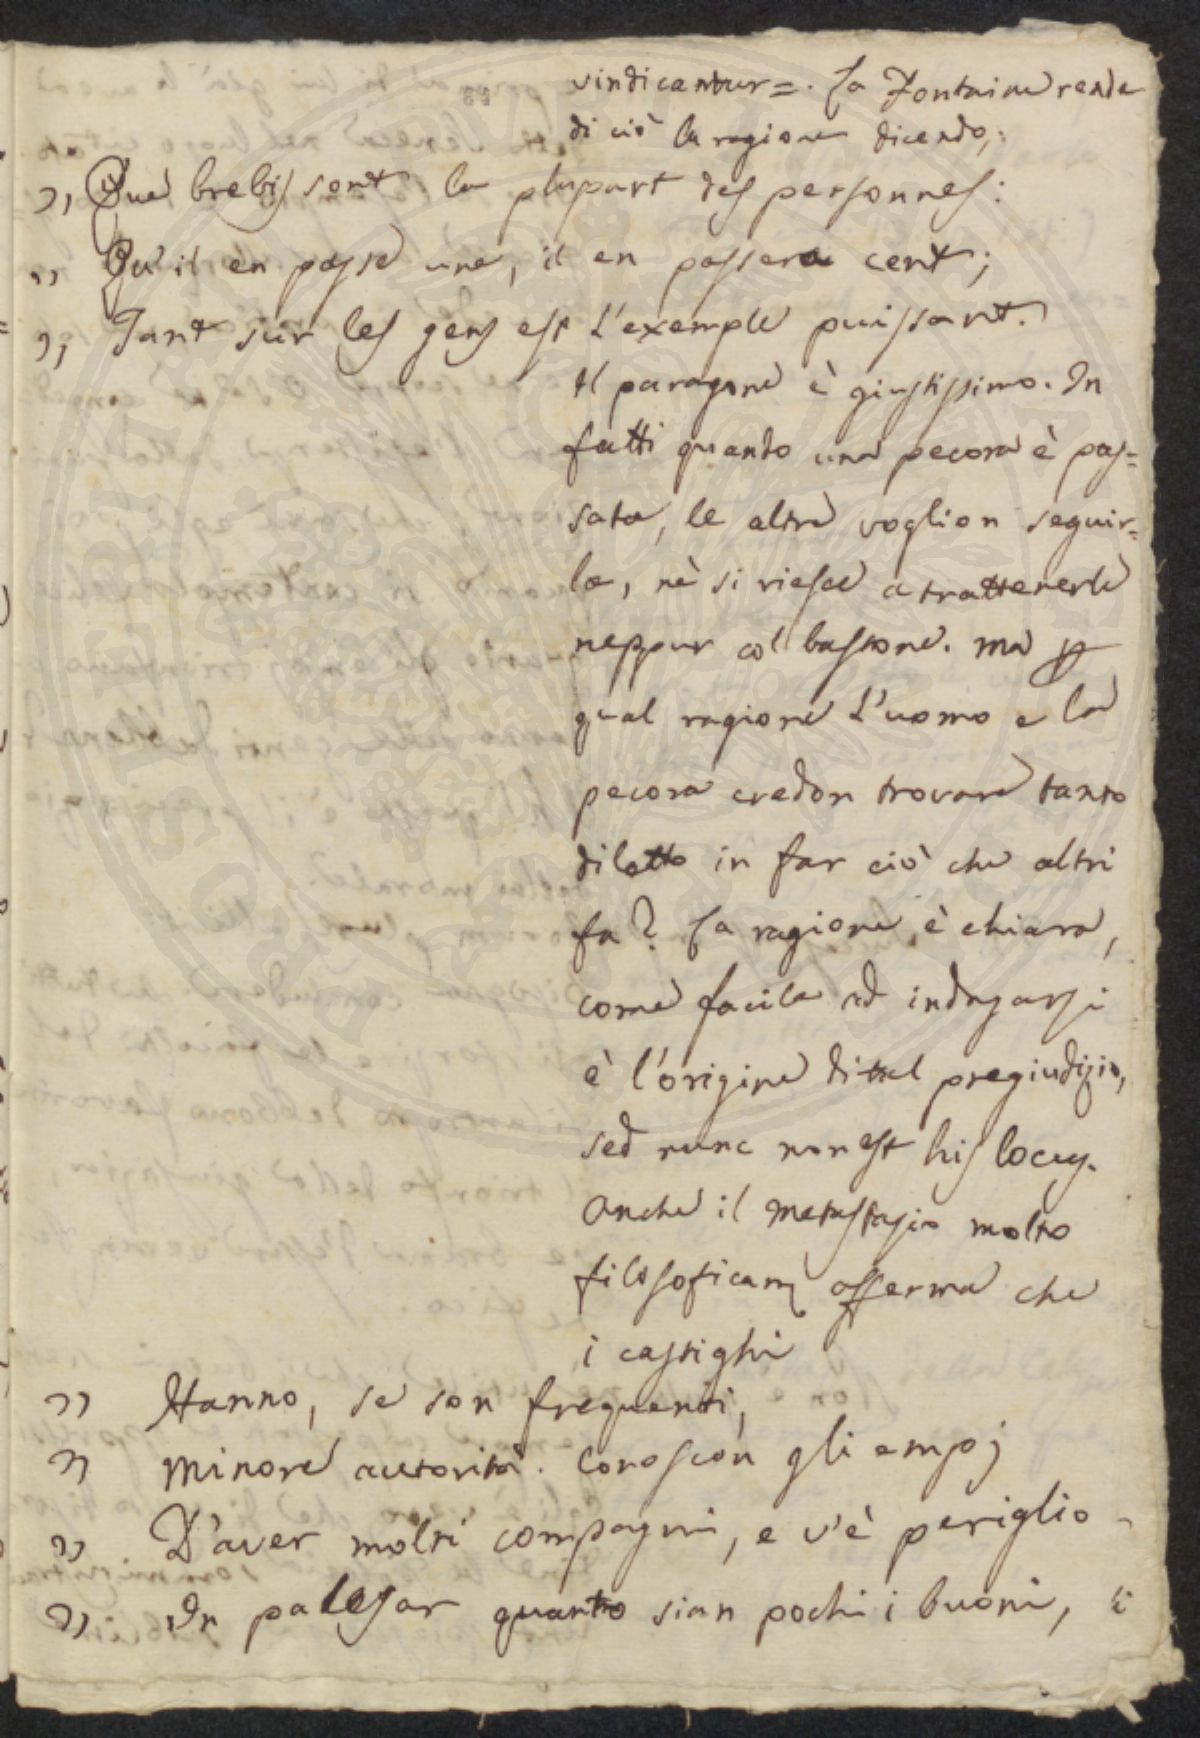 vindicantur=. La Fontaine rende
di ciò la ragione dicendo,:
,, Que brebis sont la plupart des personnes:
,, Qu'il en passe une, il en passera cent;
,, Tant sur les gens est l'exemple puissant.
Il paragone è giustissimo. In
fatti quando una pecora è pas=
sata, le altre voglion seguir=
la, nè si riesce a trattenerle
neppur col bastone. ma
qual ragione l'uomo e la
pecora credon trovare tanto
diletto in far ciò che altri
fa? La ragione è chiara,
come facile ad indagarsi
è l'origine di tal pregiudizio,
sed nunc non est his locus.
Anche il Metastasio molto
filosoficam afferma che
i castighi
,, Hanno, se son frequenti,
,, minore autorità. Conoscon gli empj
,, D'aver molti compagni, e v'è periglio
,, In palesar quanto sian pochi i buoni,